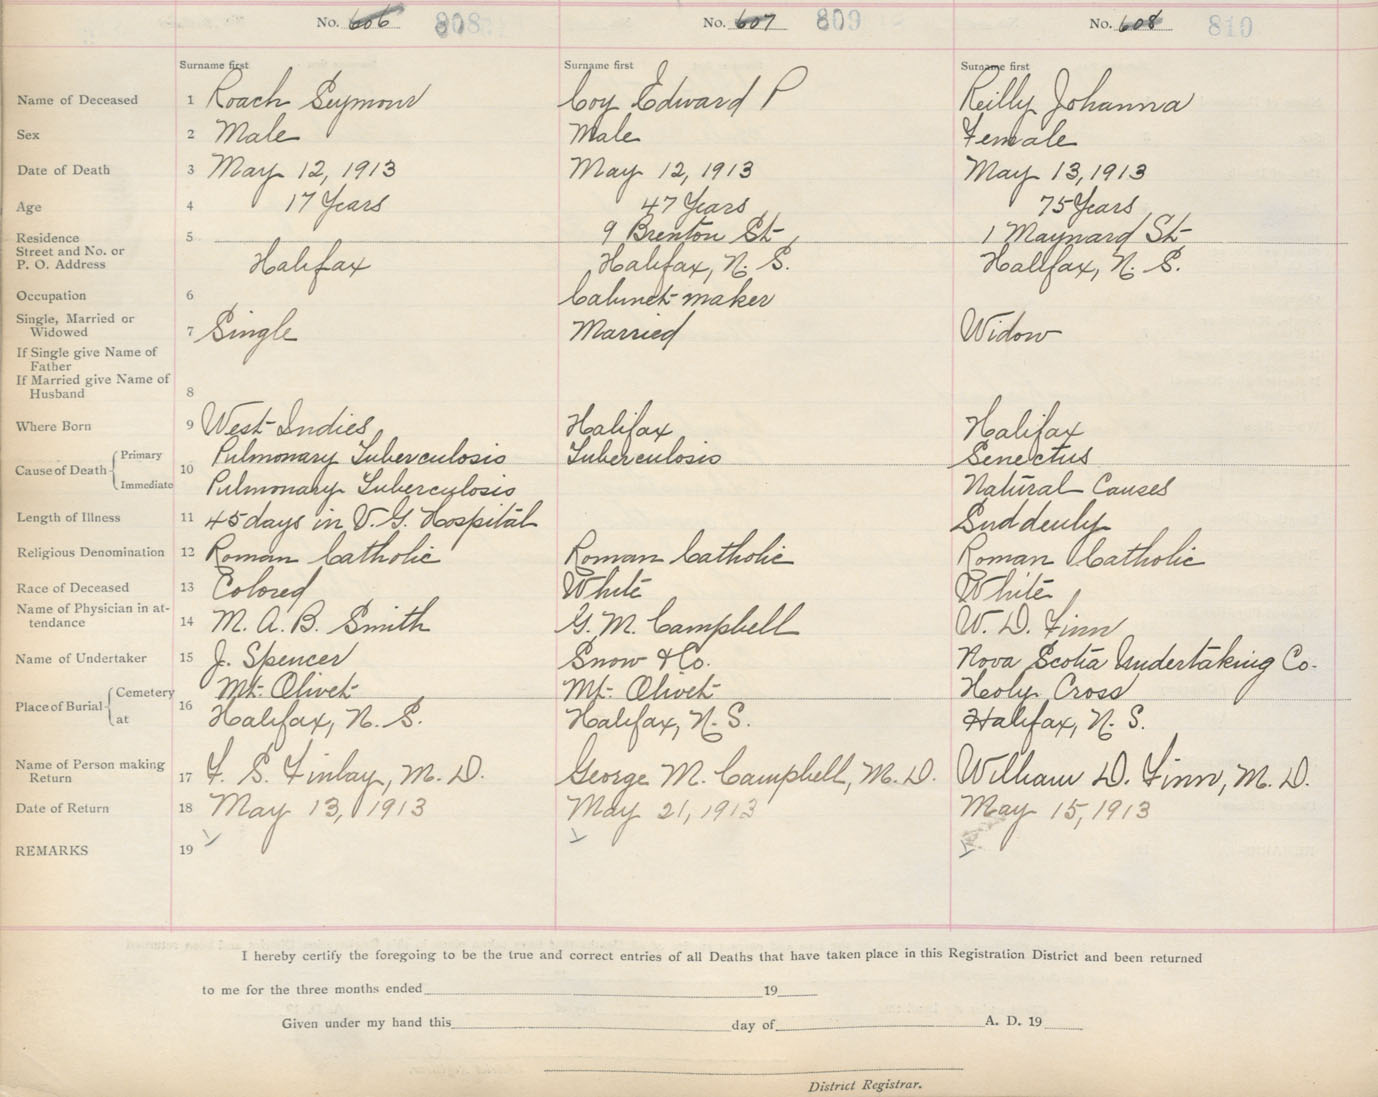 No. 606 808 No. 607 809 No. 608 810
Surname first Surname first Surname first
Name of Deceased 1 Roach Seymour Coy Edward P Reilly Johanna
Sex 2 Male Male Female
Date of Death 3 May 12, 1913 May 12, 1913 May 13, 1913
Age 4 17 Years 47 Years 75 Years
Residence 5 9 Brenton St, 1 Maynard St
Street and No. or
P. O. Address Halifax Halifax, N. S. Halifax, N. S.
Occupation 6 Cabinet-maker
Single, Married or
Widowed 7 Single Married Widow
If Single give Name of
Father
If Married give Name of
Husband 8
Where Born 9 West Indies Halifax Halifax
Primary Pulmonary Tuberculosis Tuberculosis Senectus
Cause of Death 10
Immediate Pulmonary Tuberculosis Natural Causes
Length of Illness 11 45 days in V. G. Hospital Suddenly
Religious Denomination 12 Roman Catholic Roman Catholic Roman Catholic
Race of Deceased 13 Colored White White
Name of Physician in at-
tendance 14 M. A. B. Smith G. M. Campbell W. D. Finn
Name of Undertaker 15 J. Spencer Snow & Co. Nova Scotia Undertaking Co.
Cemetery Mt. Olivet Mt. Olivet Holy Cross
Place of Burial 16
at Halifax, N. S. Halifax, N. S. Halifax, N. S.
Name of Person making
Return 17 F. S. Finlay, M. D. George M. Campbell, M. D. William D. Finn, M. D.
Date of Return 18 May 13, 1913 May 21, 1913 May 15, 1913
REMARKS 19
I hereby certify the foregoing to be the true and correct entries of all Deaths that have taken place in this Registration District and been returned
to me for the three months ended 19
Given under my hand this day of A. D. 19
District Registrar.